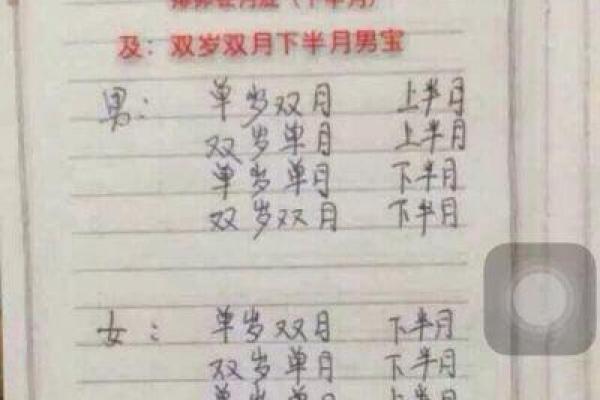 及：双岁双月下半月男宝
男： 单岁双月 上半月
双岁单月 上半月
单岁单月 下半月
双岁双月 下半月
女： 单岁双月 下半月
双岁单月 下半月
单岁单月 上半月